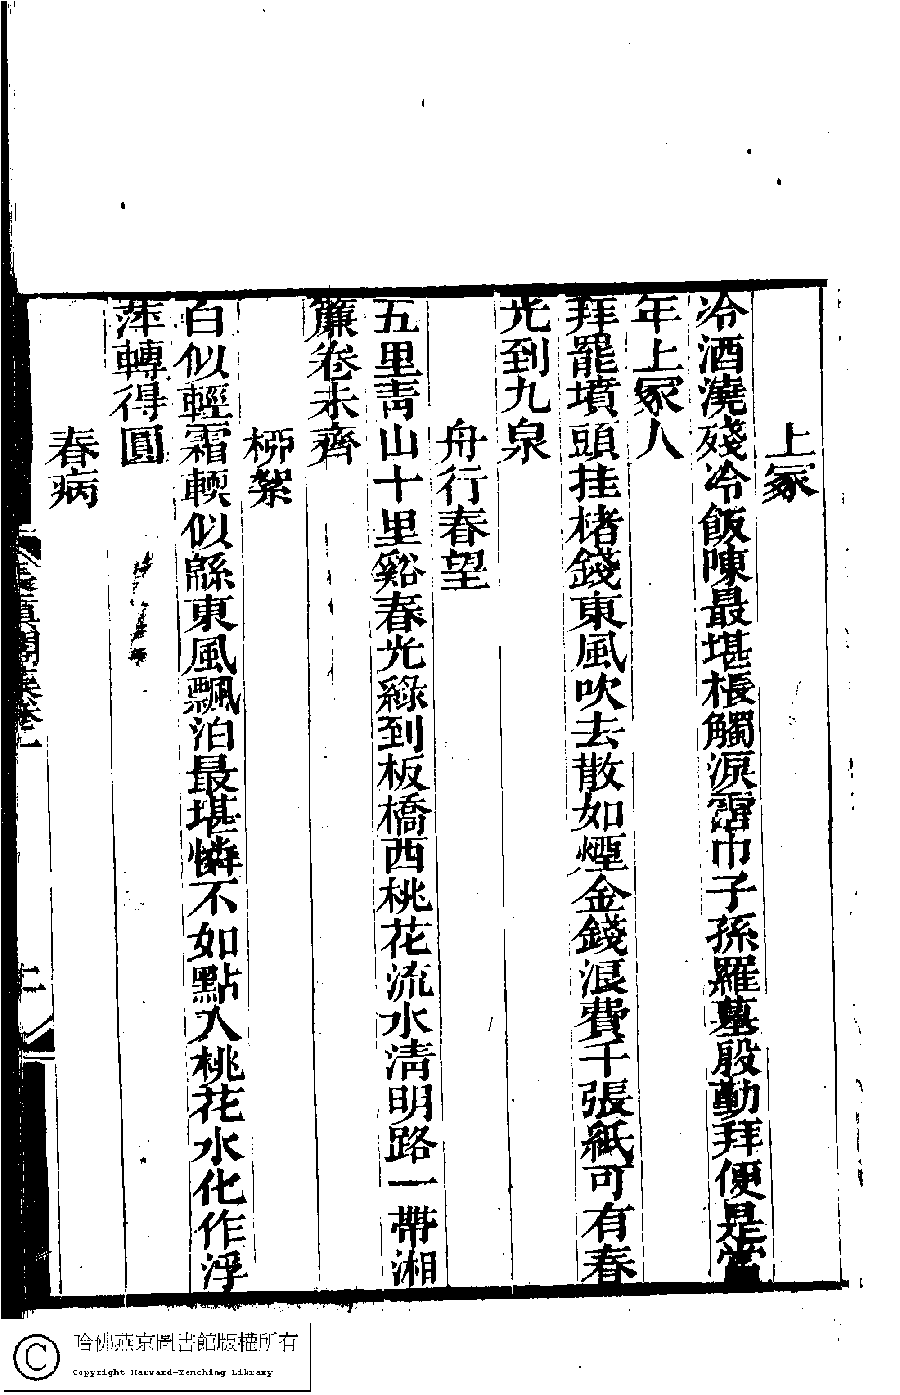 上冢
冷酒澆殘冷飯陳最堪棖觸淚霑巾子孫羅墓殷勤拜便是當
年上冢人
拜罷墳頭挂楮錢東風吹去散如煙金錢浪費千張紙可有春
光到九泉
舟行春望
五里靑山十里谿春光綠到板橋西桃花流水淸明路一帶湘
簾卷未齊
柳絮
白似輕霜輭似緜東風飄泊最堪憐不如點入桃花水化作浮
萍轉得圓
春病
閣集卷一
哈佛燕京圖書館版權所有
Copyright Harvard-Yenching Library